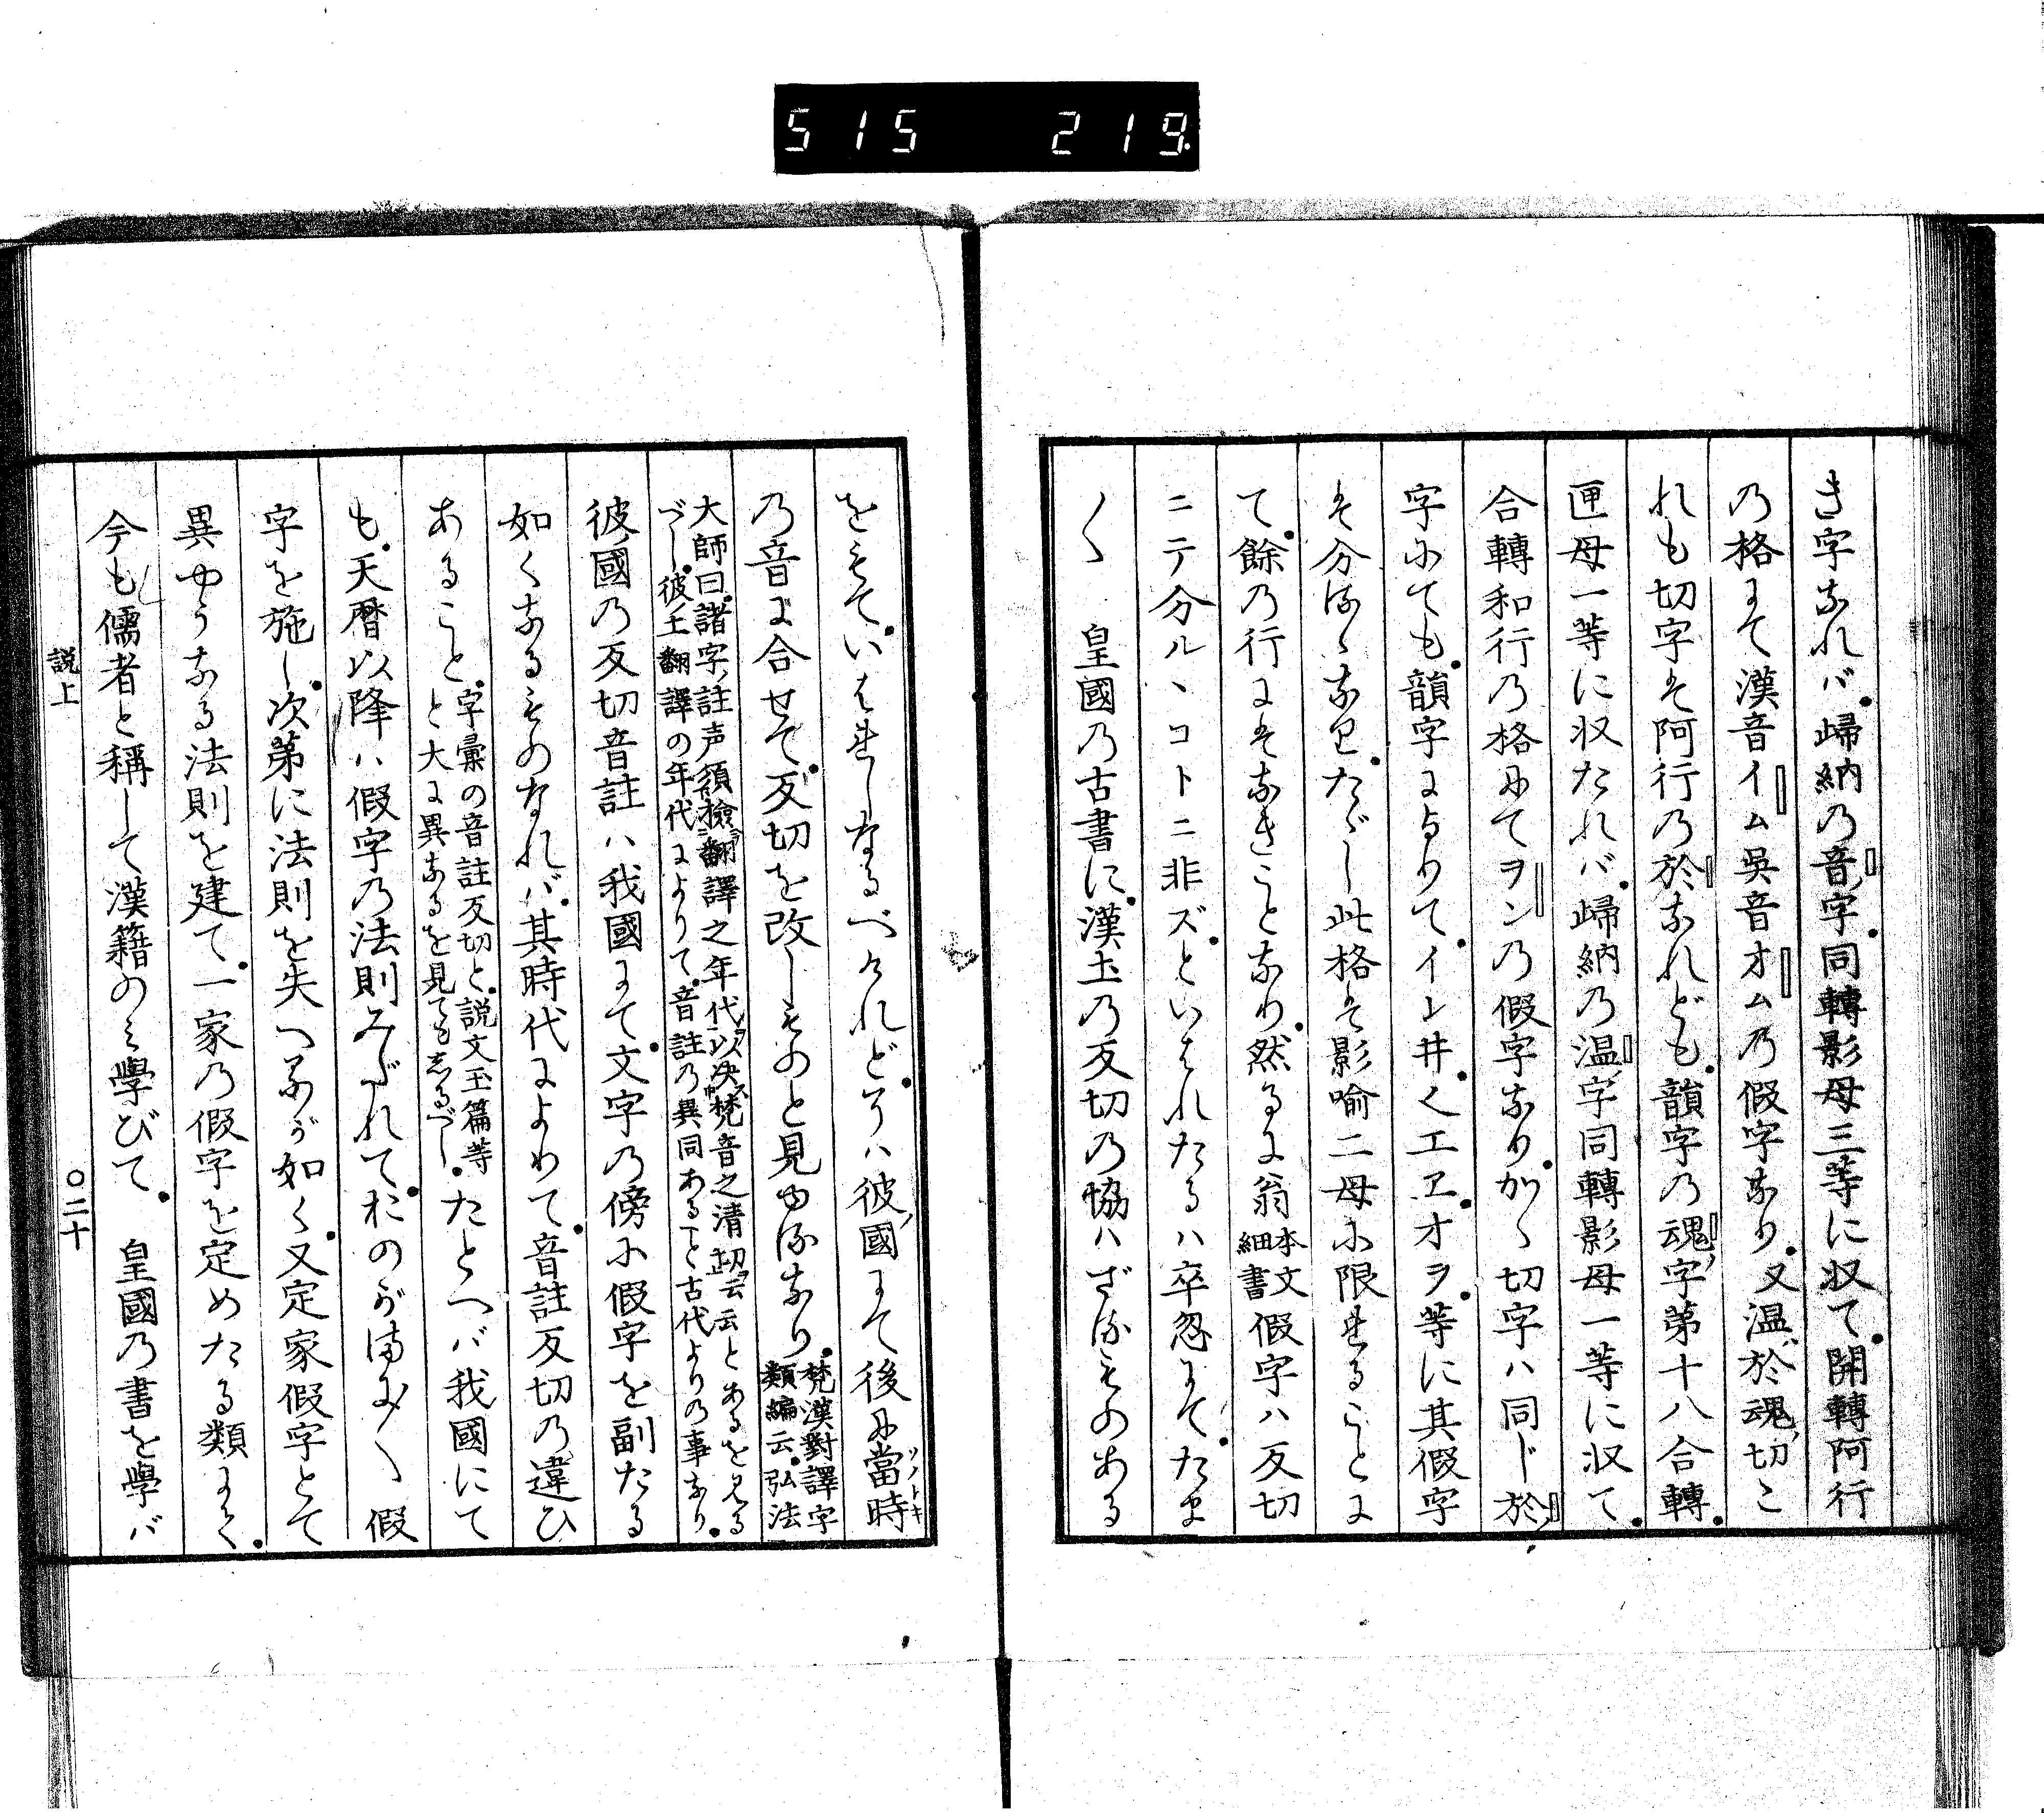 515 219
き字なれバ歸納の音字同轉影母三等に収て開轉阿行
の格にて漢音イム吳音オムの假字なり又温於魂切こ
れも切字は阿行の於なれども韻字の魂字第十八合轉
匣母一等に収たれバ歸納の温字同轉影母一等に収て
合轉和行の格にてヲンの假字なりかゝ切字ハ同じ於
字にても韻字によりてイと井くエヱオヲ等に其假字
は分るゝなりたゞし此格は影喻二母に限れることに
て餘の行にはなきことなり然るに翁本文細書假字ハ反切
ニテ分ルヽコトニ非ズといはれたるハ卒忽にてたま
〱 皇國の古書に漢土の反切の恊ハざるものある
をもていはれしなるべけれどそハ彼國にて後に當時ソノトキ
の音に合せて反切を改しものと見ゆるなり梵漢對譯字類編云弘法
大師曰諸字註声須撿翻譯之年代以决梵音之清切云云とあるを見る
べし彼土翻譯の年代によりて音註の異同あること古代よりの事なり
彼國の反切音註ハ我國にて文字の傍に假字を副たる
如くなるものなれバ其時代によりて音註反切の違ひ
あること字彙の音註反切と說文玉篇等と大に異なるを見てもしるべしたとへバ我國にて
も天曆以降ハ假字の法則みだれておのがまに〱假
字を施し次第に法則を失へるが如く又定家假字とて
異やうなる法則を建て一家の假字を定めたる類にて
今も儒者と稱して漢籍のミ學びて 皇國の書を學バ
説上 〇二十